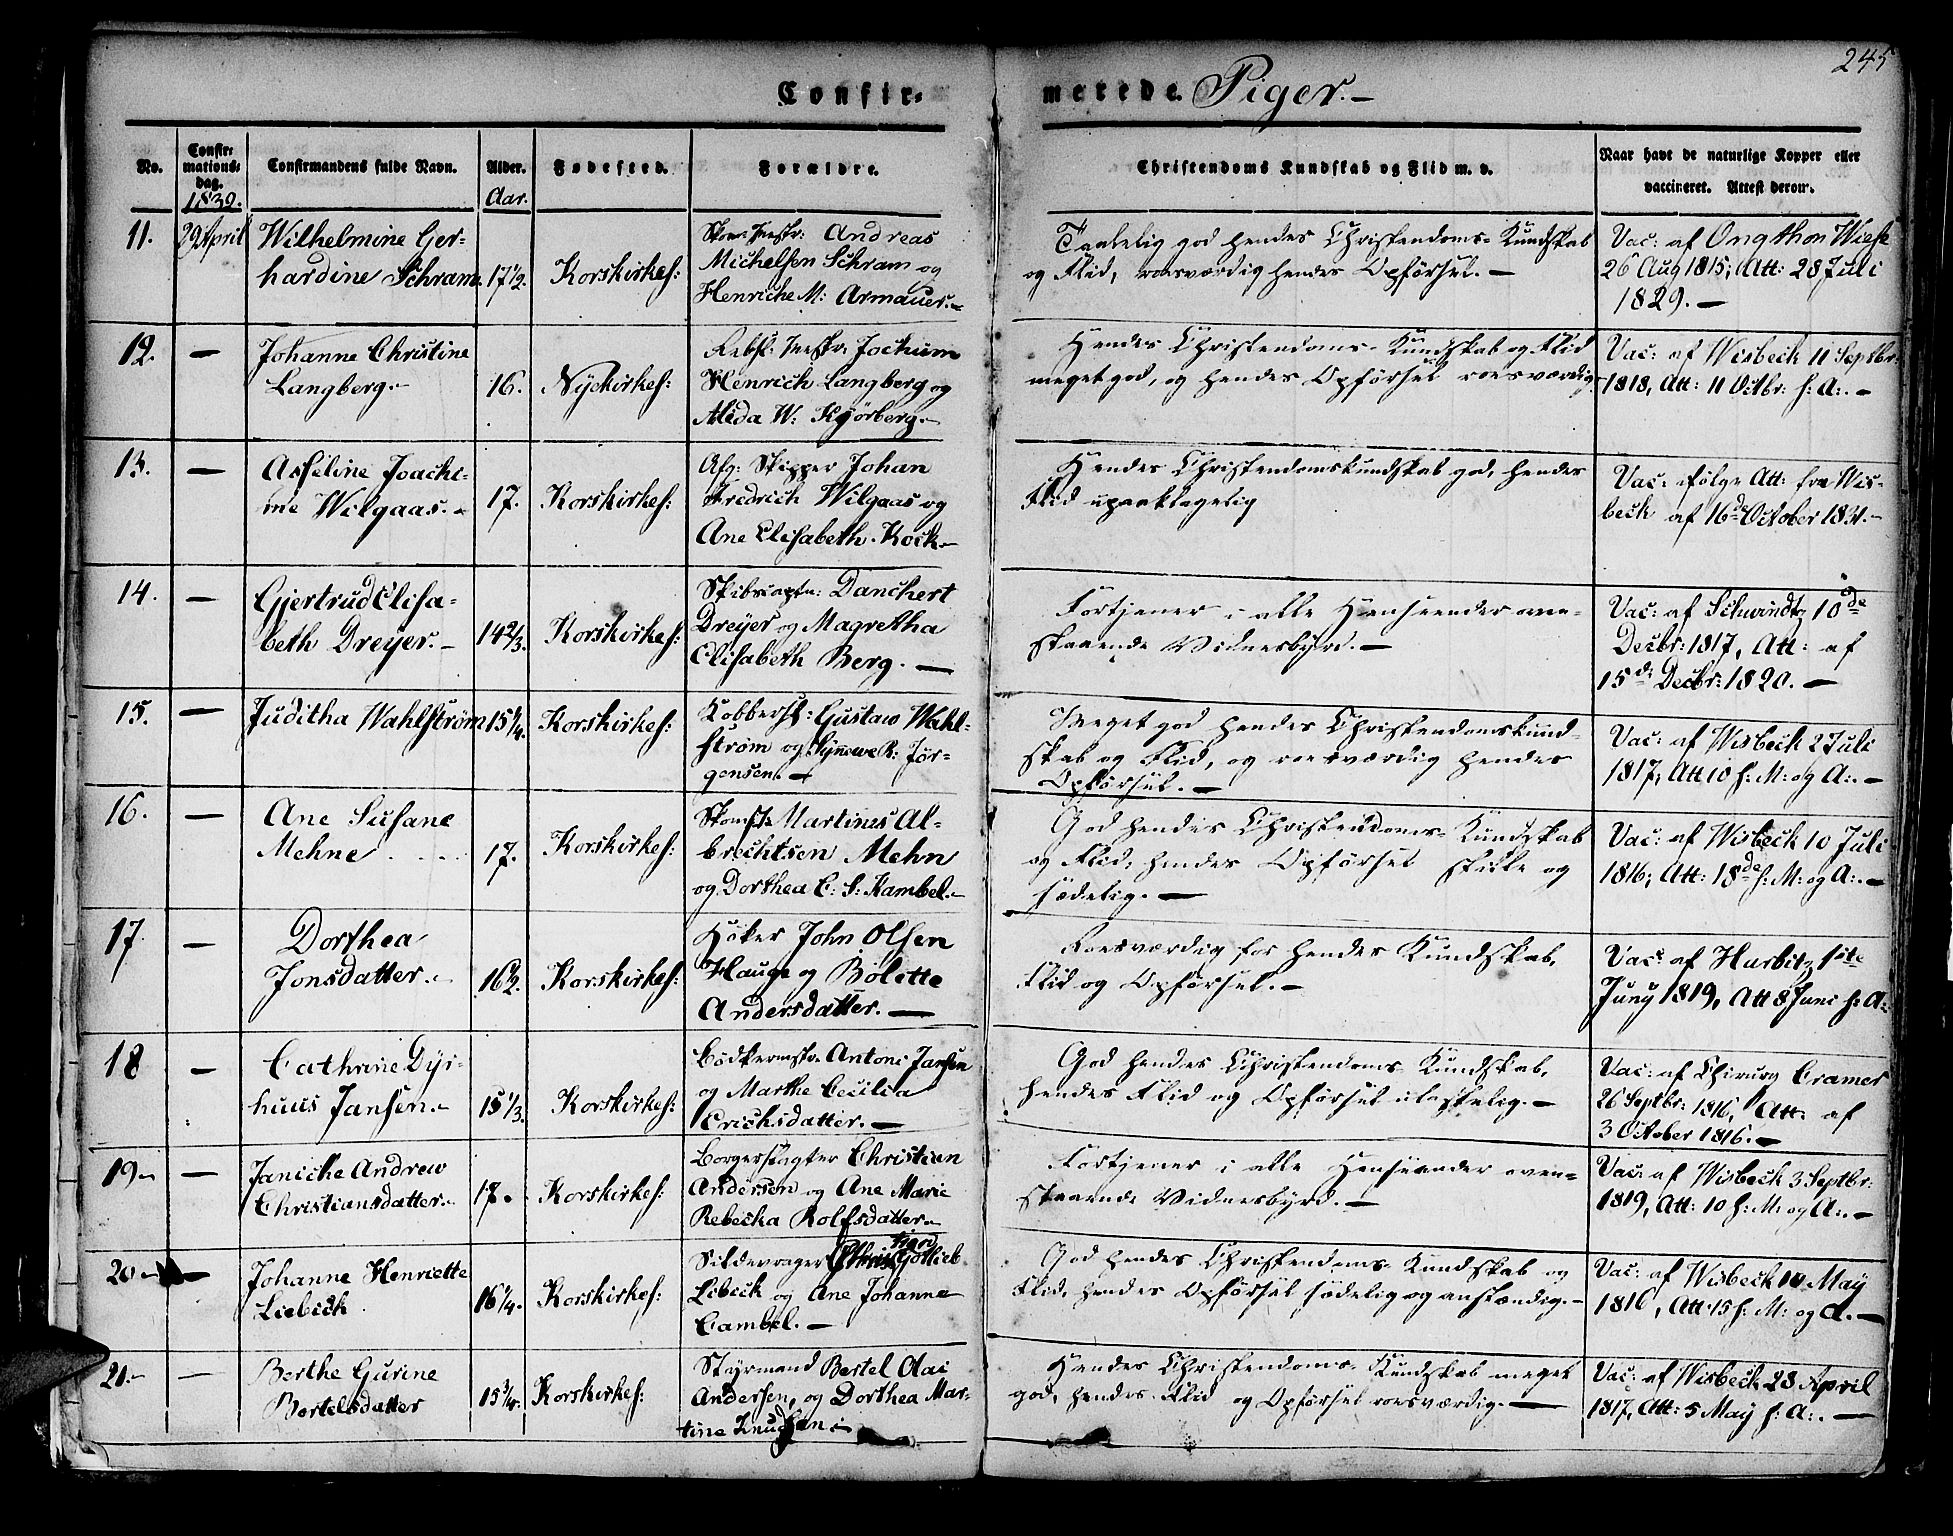 245
Confirmerede Piger.-
No.
Confirmationsdag. 1832.
Confirmandens fulde Navn.
Alder. Aar.
Fødested.
Forældre.
Christendoms Kundskab og Flid m. v.
Naar havt de naturlige Kopper eller
vaccineret. Attest derom.
11. 29 April
Wilhelmine Ger-
hardine Schram
17½.
Korskirkes:
Skom: Mestr: Andreas
Michelsen Schram og
Henriche M: Armauer.-
Taalelig god hendes Christendoms-Kundskab
og Flid, roesværdig hendes Opførsel.-
Vac: af Ongthon Wiese
26 Aug 1815; Att: 28 Juli
1829.-
12. -
Johanne Christine
Langberg.-
16.
Nyekirkes:
Rebsl: Mestr: Jochum
Henrich Langberg og
Alida W: Kjörberg.-
Hendes Christendoms-Kundskab og Flid
meget god, og hendes Opførsel roesværdig
Vac: af Wisbeck 11 Septbr:
1818, Att: 11 Octbr: s: A:.-
13. -
Asseline Joachi-
me Wilgaas.-
17.
Korskirkes:
Afg: Skipper Johan
Fredrich Wilgaas og
Ane Elisabeth Kock.-
Hendes Christendomskundskab god, hendes
Flid upaaklagelig
Vac: ifølge Att: fra Wis-
beck af 16de October 1831.-
14. -
Gjertrud Elisa-
beth Dreyer.-
14⅔.
Korskirkes:
Skibscaptn: Danchert
Dreyer og Magretha
Elisabeth Berg.-
Fortjener i alle Henseender oven-
staaende Vidnesbyrd.-
Vac: af Schwindt 10de
Decbr: 1817, Att: af
15de Decbr: 1820.-
15. -
Juditha Wahlstrøm
15¼.
Korskirkes:
Kobbersl: Gustaw Wahl-
strøm og Synewe R: Jör-
gensen.-
Meget god hendes Christendomskund-
skab og Flid, og roesværdig hendes
Opførsel.-
Vac: af Wisbeck 2 Juli
1817, Att 10 s: M: og A:.-
16. -
Ane Susane
Mehne
17.
Korskirkes:
Skomstr Martines Al-
brechtsen Mehn
og Dorthea C: S: Kambel.-
God hendes Christendoms-Kundskab
og Flid, hendes Opførsel stille og
sædelig.-
Vac: af Wisbeck 10 Juli
1816; Att: 18de s: M: og A:.-
17. -
Dorthea
Jonsdatter.-
16½.
Korskirkes:
Höker John Olsen
Hauge og Bolette
Andersdatter.-
Roesværdig for hendes Kundskab,
Flid og Opførsel.-
Vac: af Harbitz 1ste
Juny 1819, Att 8 Juni s: A:
18 -
Cathrine Dyr-
huus Jansen.-
15⅓.
Korskirkes:
Bödkermstr Antoni Jansen
og Marthe Cecilia
Erichsdatter.-
God hendes Christendoms Kundskab,
hendes Flid og Opførsel ulastelig.-
Vac: af Chirurg Cramer
26 Septbr: 1816, Att: af
3 October 1816.-
19 -
Janiche Andrew
Christiansdatter.-
17.
Korskirkes:
Borgervægter Christian
Andersen og Ane Marie
Rebecka Rolfsdatter.-
Fortjener i alle Henseender oven-
staaende Vidnesbyrd.-
Vac: af Wisbeck 3 Septbr:
1819, Att: 10 s: M: og A:.-
20 -
Johanne Henriette
Liebeck
16¼.
Korskirkes:
Sildevrager Gotlieb
Libeck og Ane Johanne
Cambel.-
God hendes Christendoms-Kundskab og
Flid, hendes Opførsel sædelig og anstændig.-
Vac: af Wisbeck 14 May
1816, Att: 15 s: M: og A.-
21. -
Berthe Gurine
Bertelsdatter
15¾.
Korskirkes:
Styrmand Bertel Olai
Andersen, og Dorthea Mar-
tine Knudsen.-
Hendes Christendoms-Kundskab meget
god, hendes Flid og Opførsel roesværdig.-
Vac: af Wisbeck 28 April
1817, Att: 5 May s: A:.-